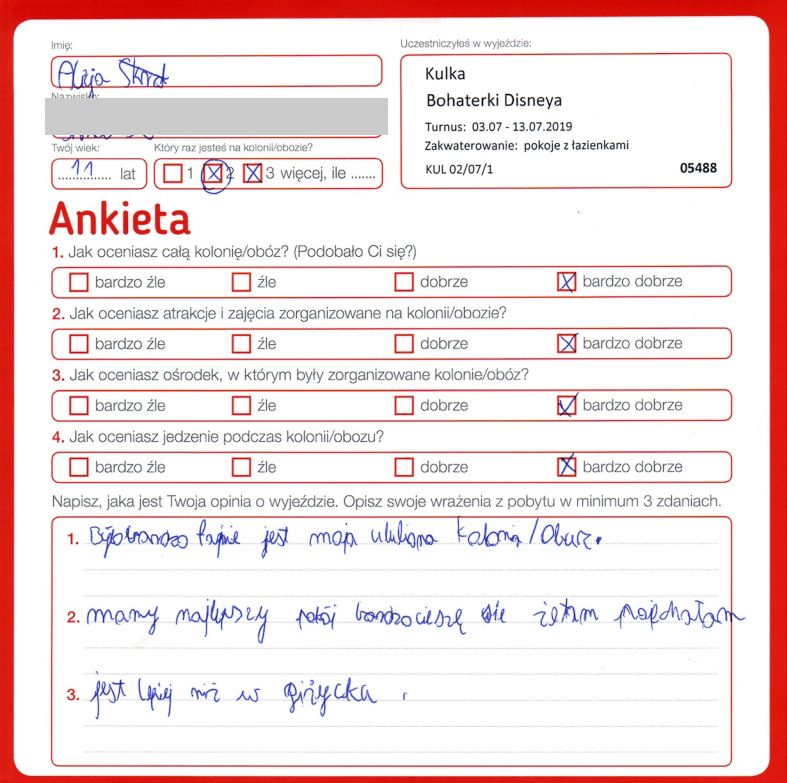 Imię:
Uczestniczyłeś w wyjeździe:
Alicja
Kulka
Bohaterki Disneya
Nazwisko:
Turnus: 03.07 - 13.07.2019
Zakwaterowanie: pokoje z łazienkami
KUL 02/07/1 05488
Twój wiek: Który raz jesteś na kolonii/obozie?
11 lat 1 2 3 więcej, ile .......
Ankieta
1. Jak oceniasz całą kolonię/obóz? (Podobało Ci się?)
bardzo źle źle dobrze bardzo dobrze
2. Jak oceniasz atrakcje i zajęcia zorganizowane na kolonii/obozie?
bardzo źle źle dobrze bardzo dobrze
3. Jak oceniasz ośrodek, w którym były zorganizowane kolonie/obóz?
bardzo źle źle dobrze bardzo dobrze
4. Jak oceniasz jedzenie podczas kolonii/obozu?
bardzo źle źle dobrze bardzo dobrze
Napisz, jaka jest Twoja opinia o wyjeździe. Opisz swoje wrażenia z pobytu w minimum 3 zdaniach.
1. fajnie jest moja ulubiona kolonia/Obuz.
2. mamy najlepszy pokój bardzo cieszę sie że tam pojechałam
3. jest lepiej niż w giżycka.